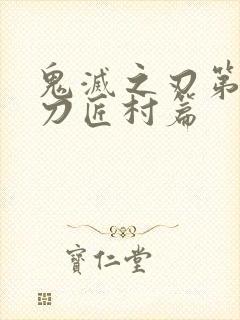 鬼滅之刃第
刀匠村篇
寶仁堂